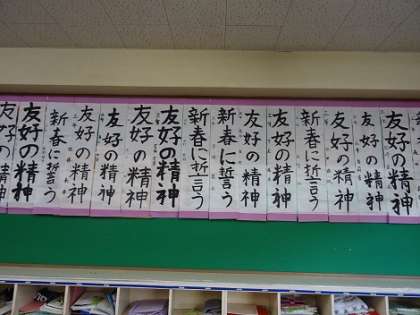 友好の精神
友好の精神
友好の精神
新春に誓う
友好の精神
友好の精神
新春に誓う
新春に誓う
友好の精神
友好の精神
友好の精神
友好の精神
新春に誓う
友好の精神
友好の精神